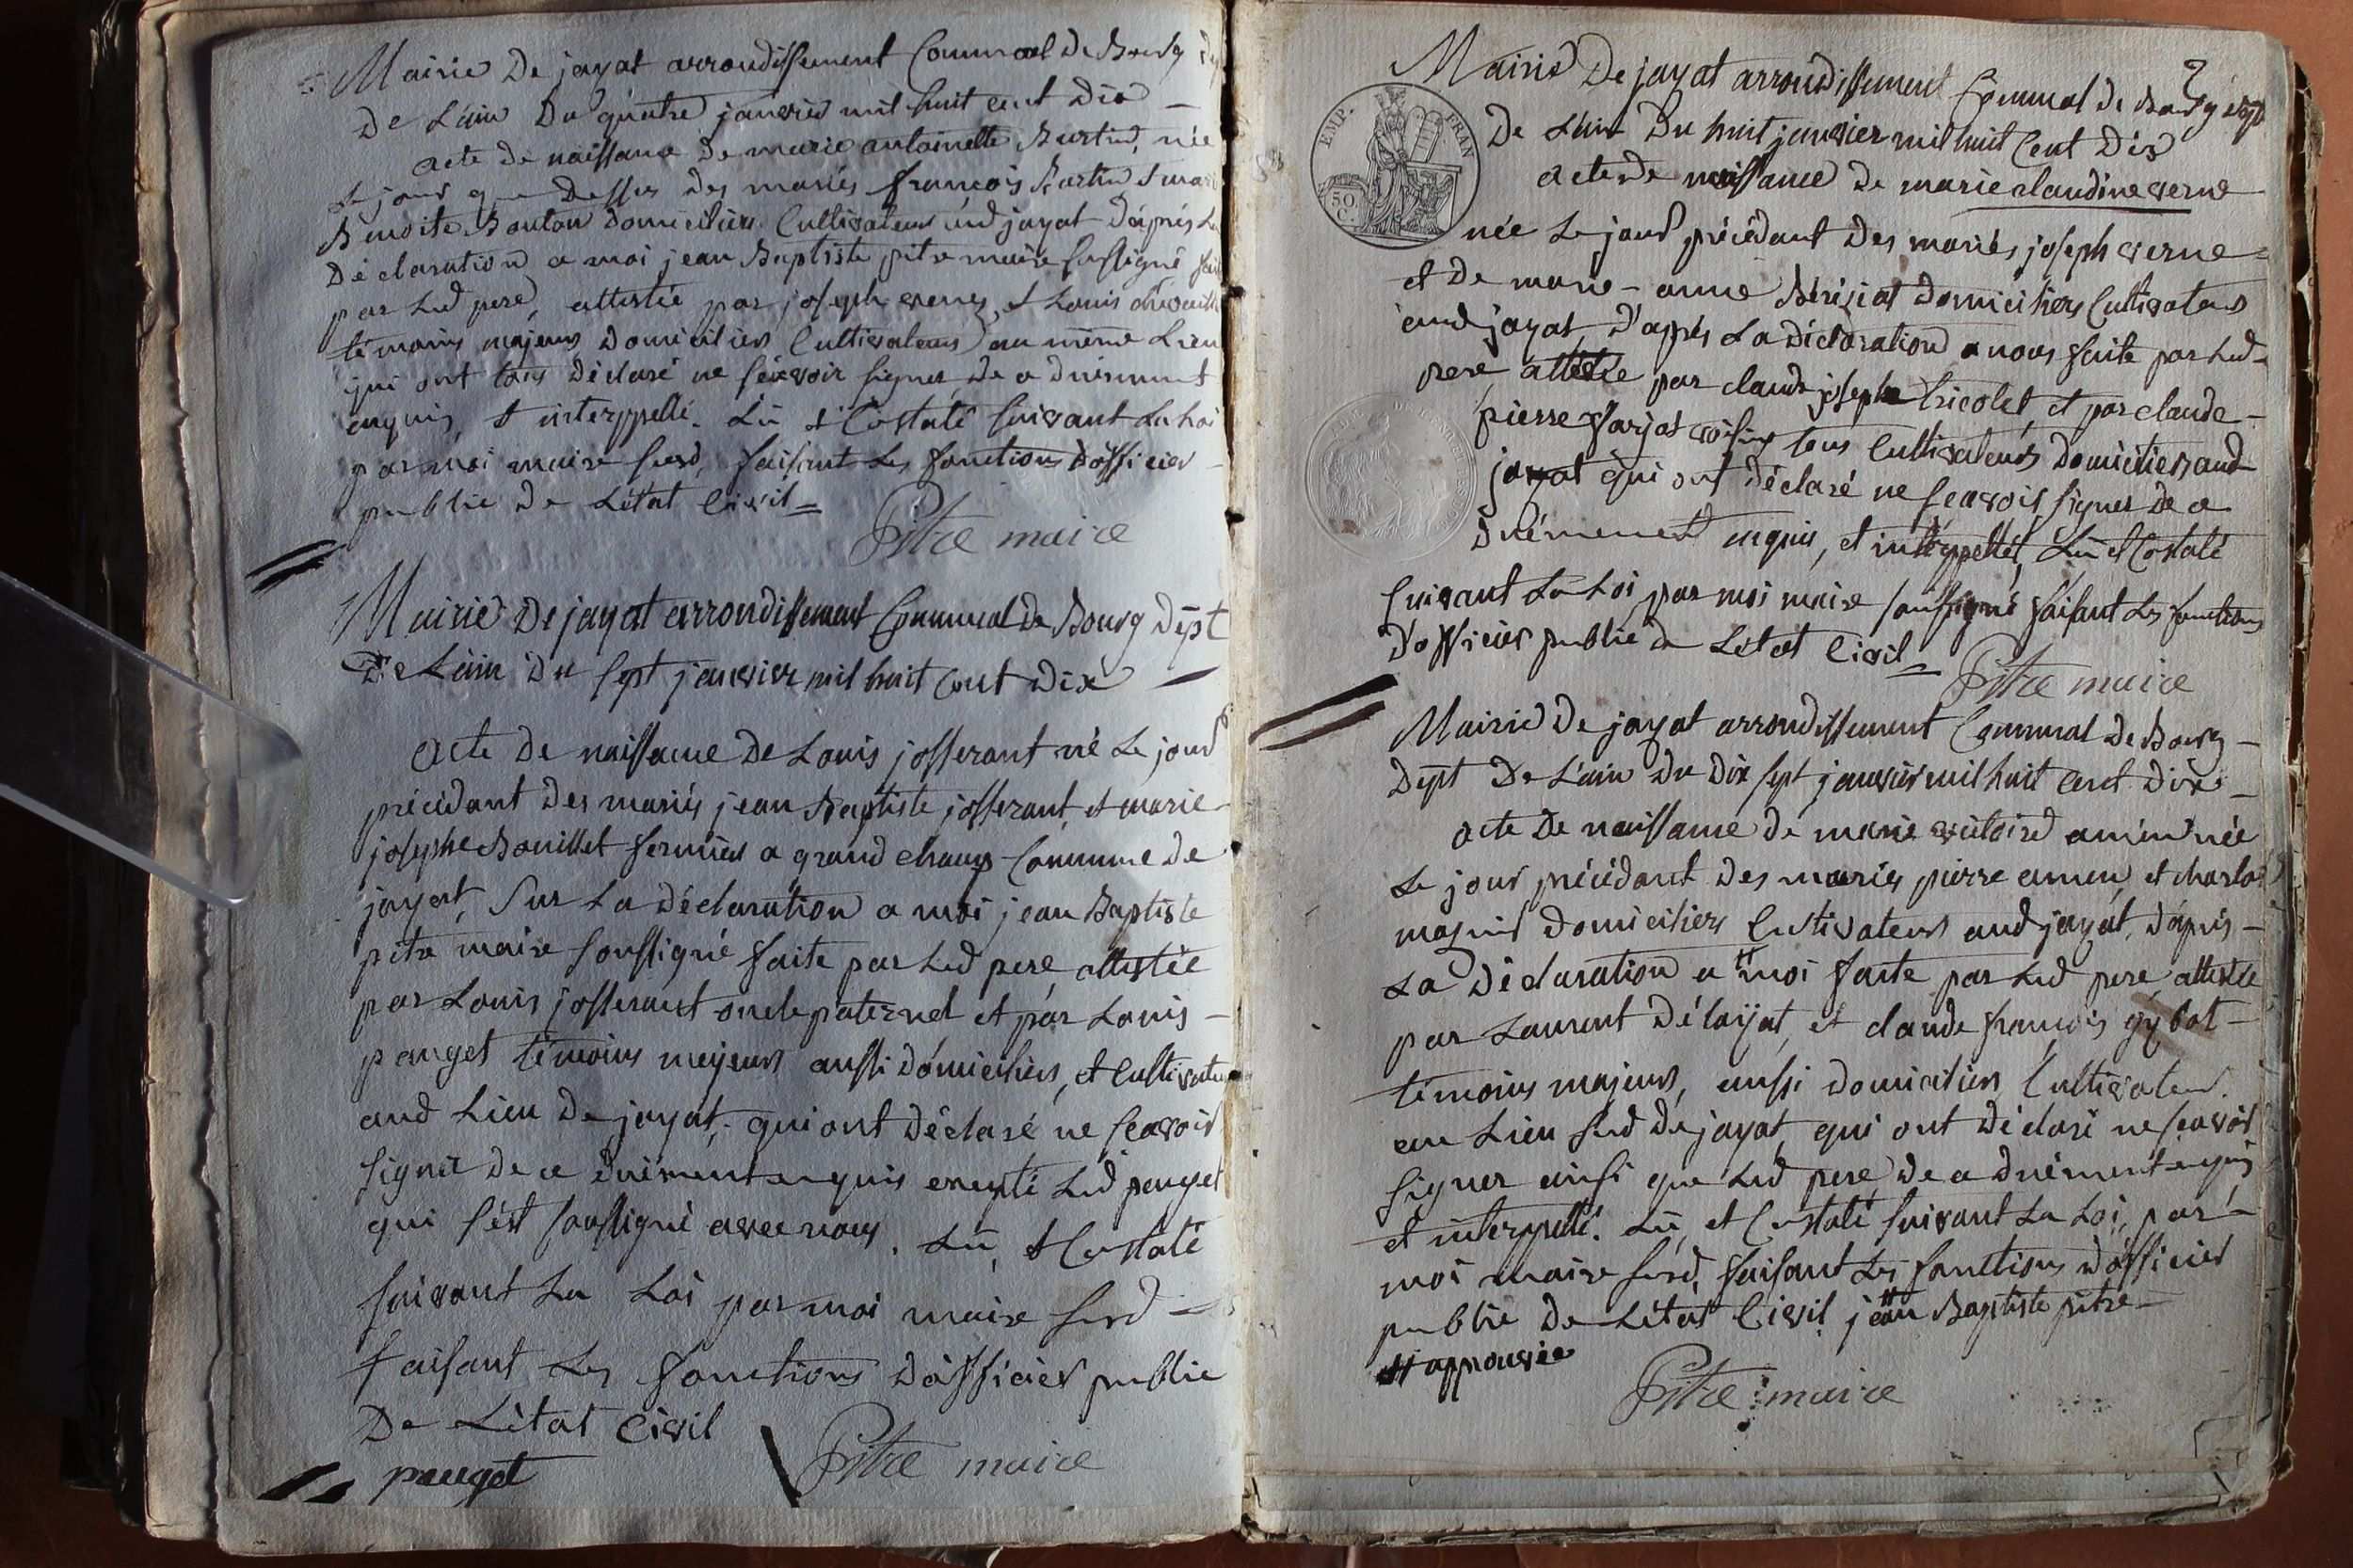 Mairie De jayat arrondissement Communal De Bourg
De L'ain Du quatre janvier mil huit cent dix —
acte de naissance de marie antoinette Burtin, née
Le jour que Dessus des mariés françois Burtin et
Benoite Bouton domiciliers Cultivateurs aud jayat d'après La
Déclaration a moi jean Baptiste pitre maire soussigné
par Led pere, attestée par joseph verne, et Louis
témoins majeurs domiciliers Cultivateurs au même Lieu
qui ont tous déclaré ne sçavoir signer de ce duement
enquis, et interppellé. Lû et Costaté suivant La Loi
par moi maire susd, faisant Les fonctions d'officier
public De L'état Civil =
Pitre maire
Mairie De jayat arrondissement Communal De Bourg Dept
De L'ain Du sept janvier mil huit cent Dix —
acte de naissance De Louis josserant né Le jour
précédant Des mariés jean Baptiste josserant, et marie
josephe Bouillet fermiers a grand champ Commune De
jayat, sur La Déclaration a moi jean Baptiste
pitre maire soussigné faite par Led pere, attestée
par Louis josserant oncle paternel et par Louis —
pauget témoins majeurs aussi domiciliers, et Cultivateurs
aud Lieu De jayat, qui ont Déclaré ne sçavoir
signer De ce duement enquis excepté Led pauget
qui s'est soussigné avec nous. Lû, et Costaté
suivant La Loi par moi maire susd —
faisant Les fonctions d'officier public
De L'état Civil
Pitre maire
pauget
2
Mairie De jayat arrondissement Communal De Bourg dept
De L'ain Du huit janvier mil huit Cent Dix
EMP. FRAN
50 C.
acte de naissance De marie claudine verne
née Le jour précédant Des mariés joseph verne =
et De marie-anne Bérisiat Domiciliers Cultivateurs
aud jayat D'après La Déclaration a nous faite par Led —
pere, attestée par claude joseph tricolet, et par claude —
pierre farjat voisins tous Cultivateurs Domiciliers aud
jayat qui ont Déclaré ne sçavoir signer De ce
Duement enquis, et interppellés, Lû et Costaté
suivant La Loi par moi maire soussigné faisant Les fonctions
d'officier public De L'état Civil =
Pitre maire
Mairie De jayat arrondissement Communal De Bourg —
Dept De L'ain Du Dix sept janvier mil huit cent Dix —
acte De naissance De marie victoire amen née
Le jour précédant Des mariés pierre amen, et
magnin Domiciliers Cultivateurs aud jayat, d'après —
La Déclaration a # moi faite par Led pere, attestée
par Laurent Délayat, et claude françois gybot —
témoins majeurs, aussi domiciliers Cultivateurs
au Lieu susd De jayat, qui ont Déclaré ne sçavoir
signer ainsi que Led pere De ce duement enquis
et interppellé. Lû, et Costaté suivant La Loi, par —
moi maire susd, faisant Les fonctions d'officier
public De L'état Civil # jean Baptiste pitre —
# approuvée
Pitre maire